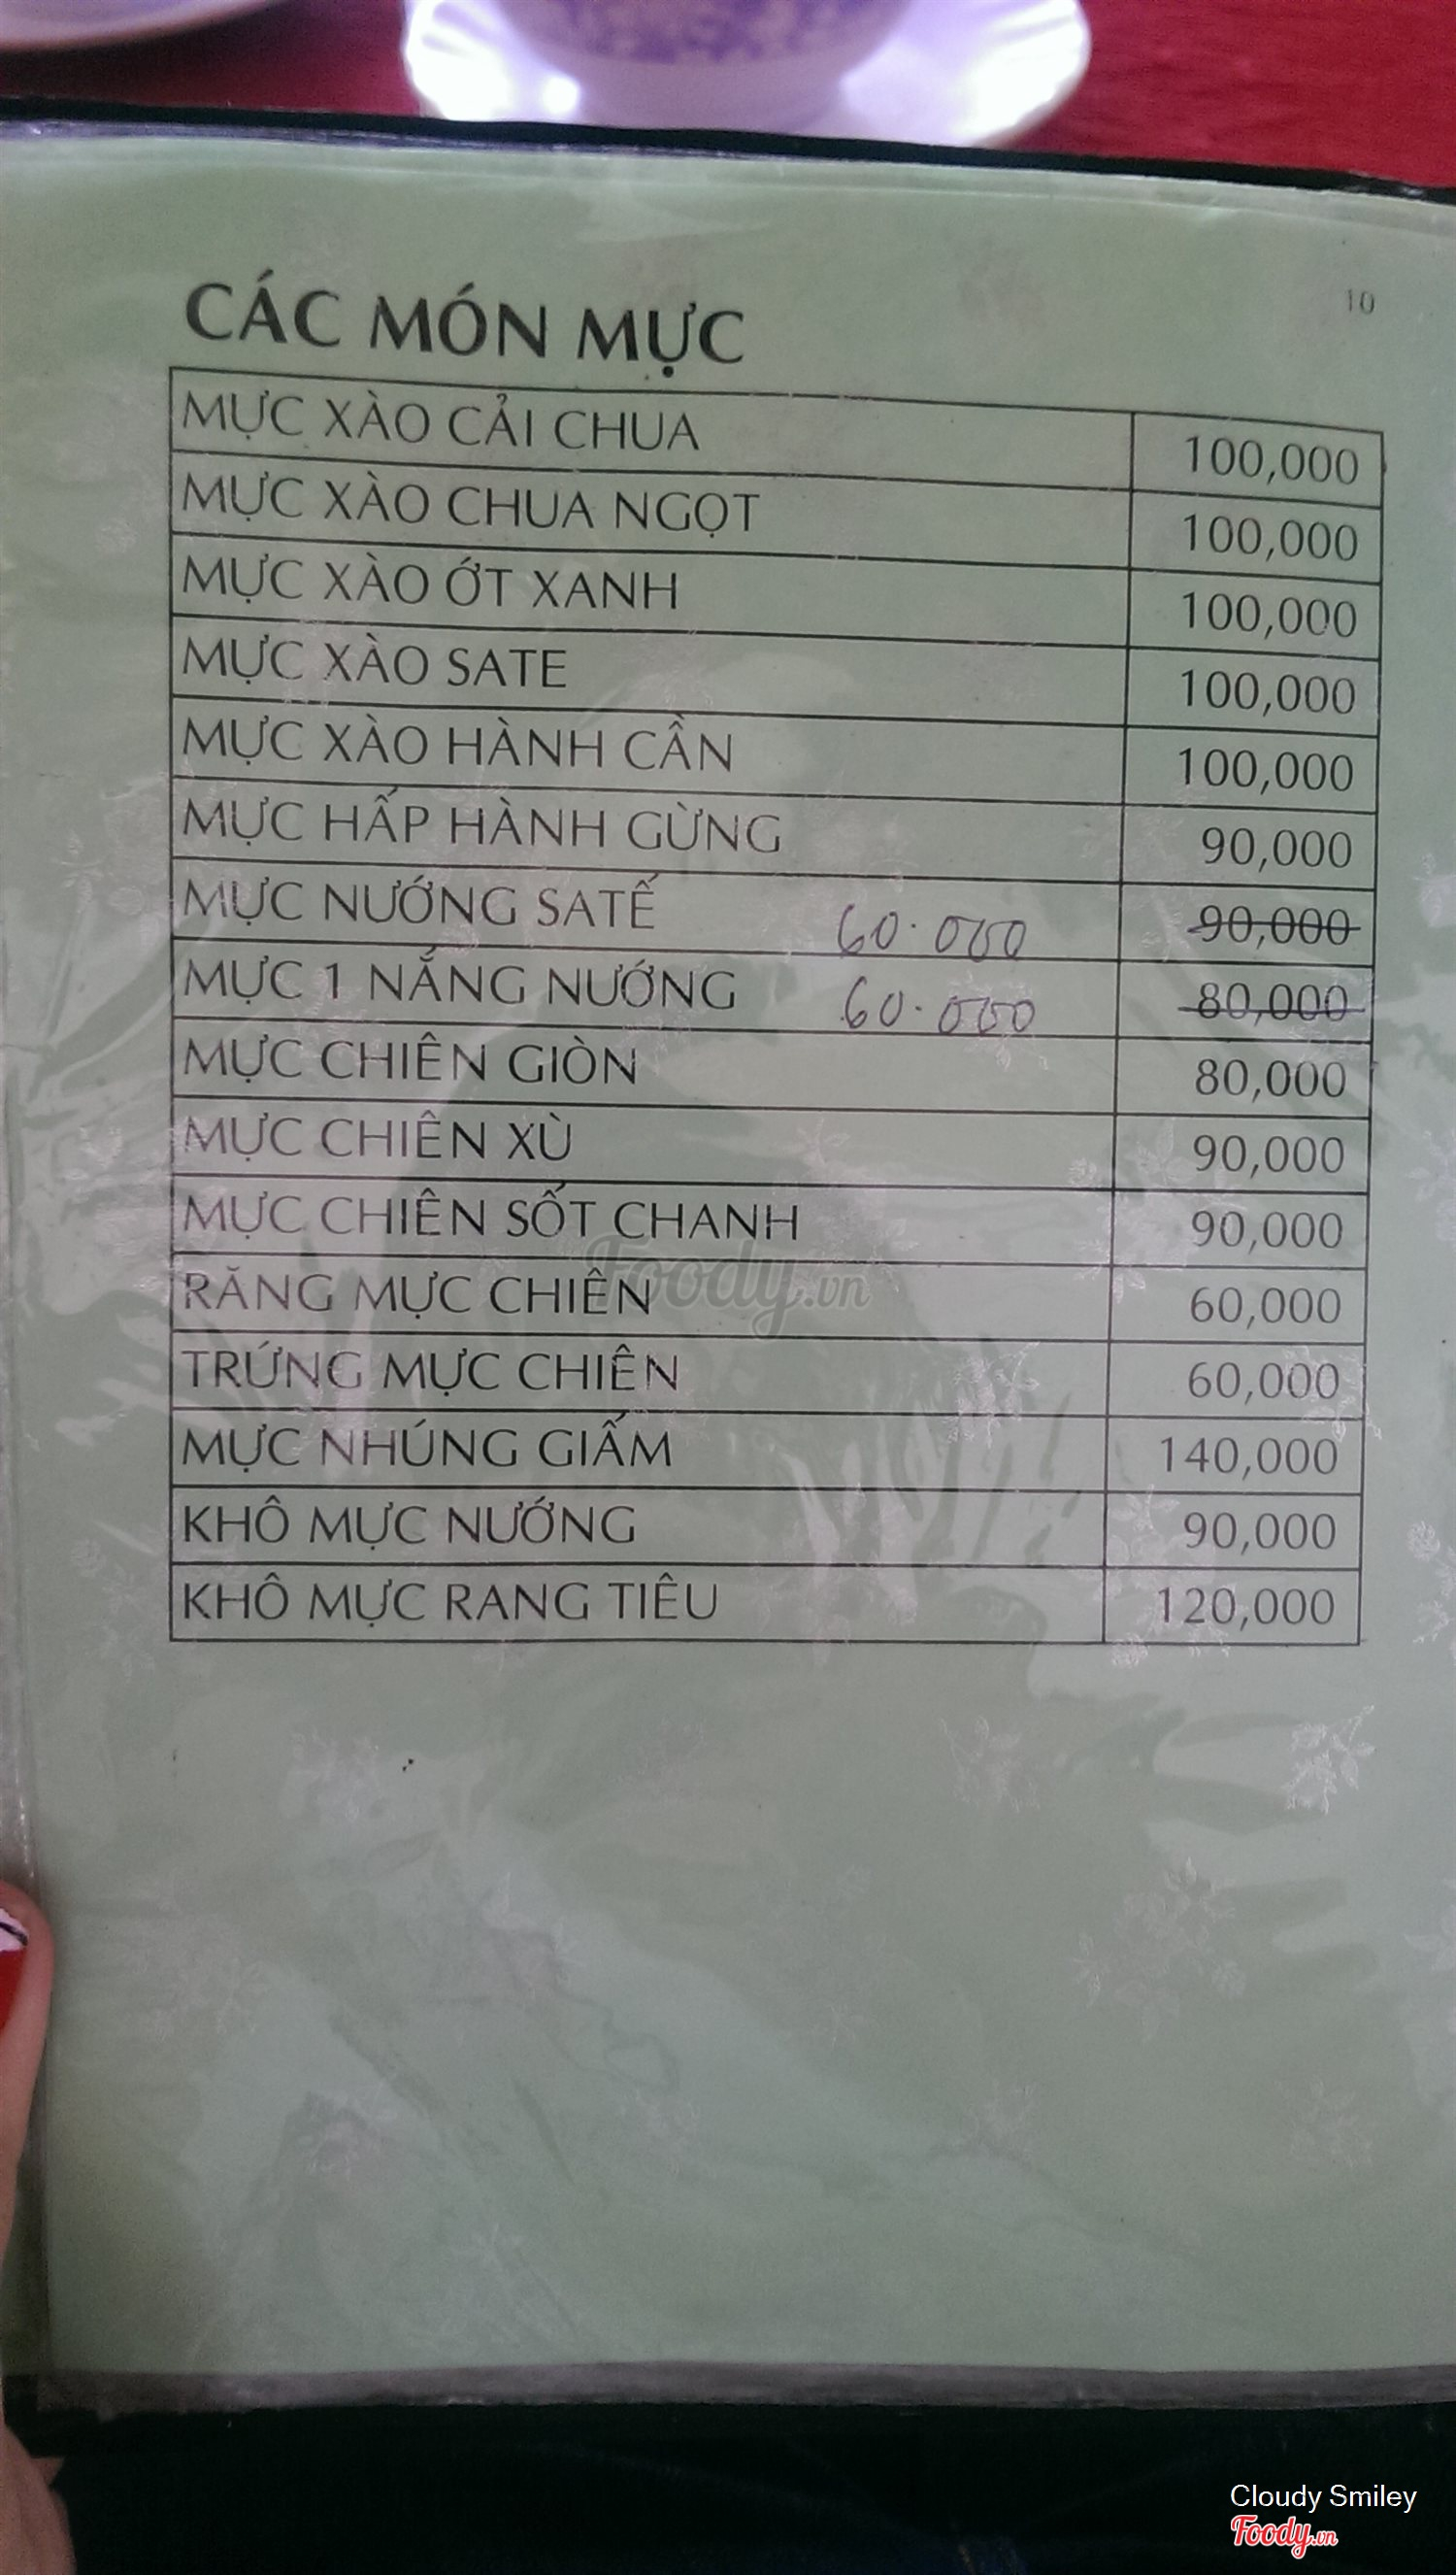 10
CÁC MÓN MỰC
MỰC XÀO CẢI CHUA 100,000
MỰC XÀO CHUA NGỌT 100,000
MỰC XÀO ỚT XANH 100,000
MỰC XÀO SATE 100,000
MỰC XÀO HÀNH CẦN 100,000
MỰC HẤP HÀNH GỪNG 90,000
MỰC NƯỚNG SATẾ 60.000 90,000
MỰC 1 NẮNG NƯỚNG 60.000 80,000
MỰC CHIÊN GIÒN 80,000
MỰC CHIÊN XÙ 90,000
MỰC CHIÊN SỐT CHANH 90,000
RĂNG MỰC CHIÊN 60,000
TRỨNG MỰC CHIÊN 60,000
MỰC NHÚNG GIẤM 140,000
KHÔ MỰC NƯỚNG 90,000
KHÔ MỰC RANG TIÊU 120,000
Foody.vn
Cloudy Smiley
Foody.vn